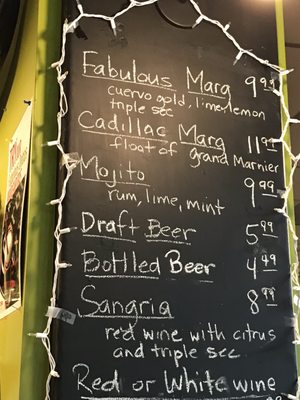 Fabulous Marg 9.99
cuervo gold, lime+lemon
triple sec
Cadillac Marg 11.99
float of grand Marnier
Mojito 9.99
rum, lime, mint
Draft Beer 5.99
Bottled Beer 4.99
Sangria 8.99
red wine with citrus
and triple sec
Red or White wine